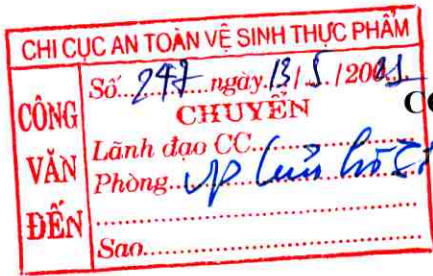 CHI CỤC AN TOÀN VỆ SINH THỰC PHẨM
CÔNG VĂN ĐẾN
Số 247 ngày 13/5/20021
CHUYỂN
Lãnh đạo CC
Phòng VP
Sao